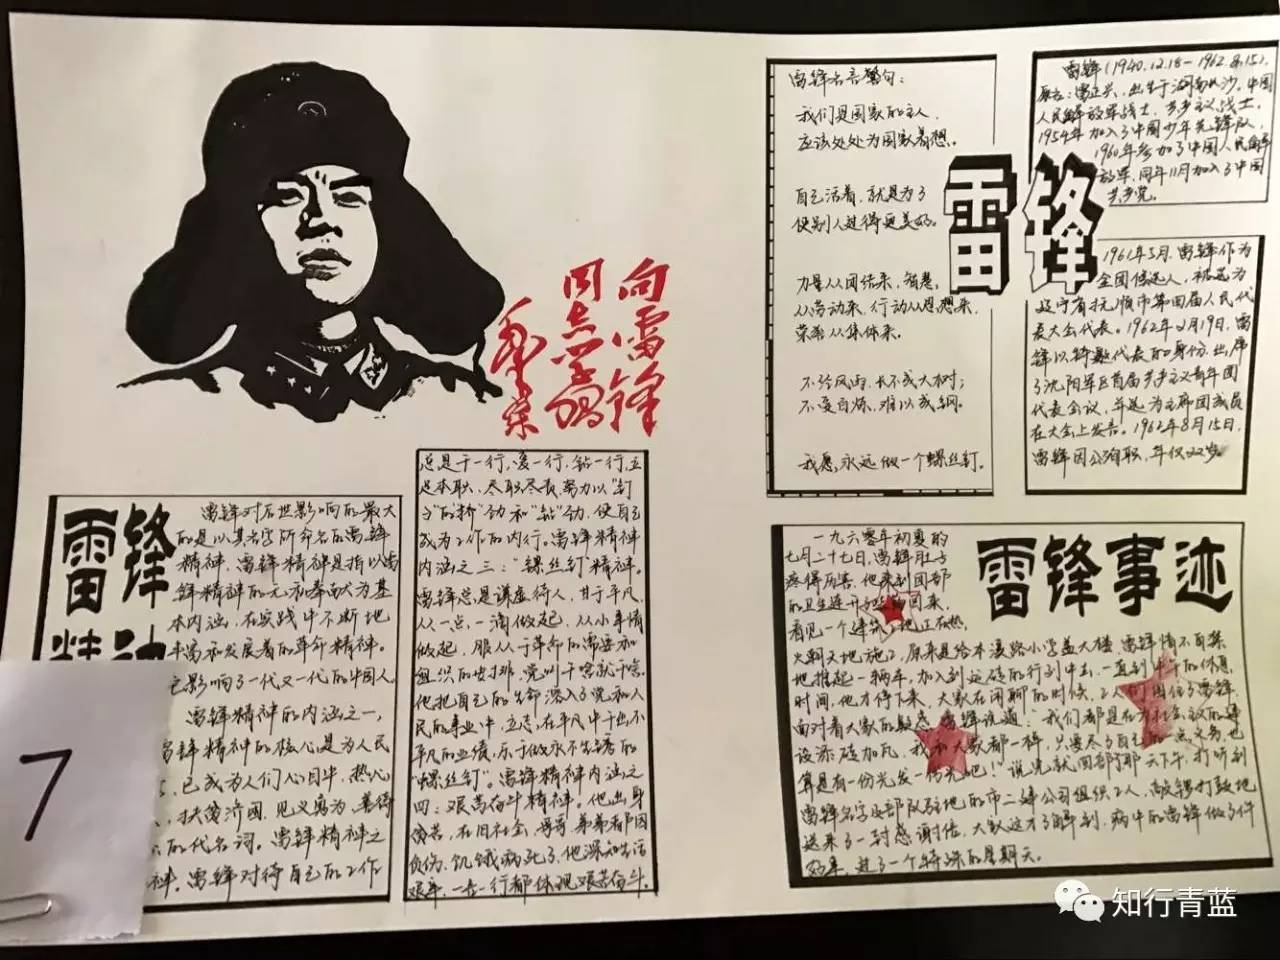 向雷锋
同志学习
毛泽东
雷锋
精神
雷锋对后世影响的最大
的是以其名字所命名的雷锋
精神，雷锋精神是指以雷
锋精神的无私奉献为基
本内涵，在实践中不断地
丰富和发展着的革命精神。
它影响了一代又一代的中国人。
雷锋精神的内涵之一，
雷锋精神的核心是为人民
已成为人们心目中，热心
扶贫济困，见义勇为，善待
的代名词。雷锋精神之
雷锋对待自己的工作
7
总是干一行，爱一行，钻一行，立
足本职，尽职尽责，努力以"钉
子"的"挤"劲和"钻"劲，使自己
成为工作的内行。雷锋精神
内涵之三："螺丝钉"精神。
雷锋总是谦虚待人，甘于平凡，
从一点，一滴做起，从小事情
做起，服从于革命的需要和
组织的安排，党叫干啥就干啥，
他把自己的全部深入了党和人
民的事业中，立志，在平凡中干出不
平凡的业绩，乐于做永不生锈的
"螺丝钉"。雷锋精神内涵之
四：艰苦奋斗精神。他出身
贫苦，在旧社会，哥哥，弟弟都因
负伤，饥饿病死了，他深知生活
艰辛，一言一行都体现艰苦奋斗。
雷锋名言警句：
我们是国家的主人，
应该处处为国家着想。
自己活着，就是为了
使别人过得更美好。
力量从团结来，智慧，
从劳动来，行动从思想来，
荣誉从集体来。
不经风雨，长不成大树；
不受百炼，难以成钢。
我愿永远做一个螺丝钉。
雷锋
雷锋（1940.12.18-1962.8.15），
原名：雷正兴，出生于湖南长沙，中国
人民解放军战士，共产主义战士，
1954年加入了中国少年先锋队，
1960年参加了中国人民解
放军，同年11月加入了中国
共产党。
1961年5月，雷锋作为
全国候选人，被选为
辽宁省抚顺市第四届人民代
表大会代表。1962年2月19日，雷
锋以特邀代表的身份，出席
了沈阳军区首届共产主义青年团
代表会议，并选为主席团成员
在大会上发言。1962年8月15日，
雷锋因公殉职，年仅22岁。
雷锋事迹
一九六零年初夏的
七月二十七日，雷锋肚子
疼得厉害，他来到团部
的卫生连开了些药回来，
看见一个建筑工地正在热
火朝天地施工，原来是给本溪路小学盖大楼，雷锋情不自禁
地推起一辆车，加入到运砖的行列中去，一直到中午的休息
时间，他才停下来，大家在闲聊的时候，工人们围住了雷锋，
面对着大家的疑惑，雷锋说道："我们都是在为社会主义的建
设添砖加瓦，我和大家都一样，只要尽了自己的一点义务，也
算是有一份光发一份光吧！"说完就回部了那天下午，打听到
雷锋名字及部队驻地的市二建公司组织工人，敲锣打鼓地
送来了一封感谢信，大家这才了解到，病中的雷锋做了件
好事，过了一个特殊的星期天。
知行青蓝